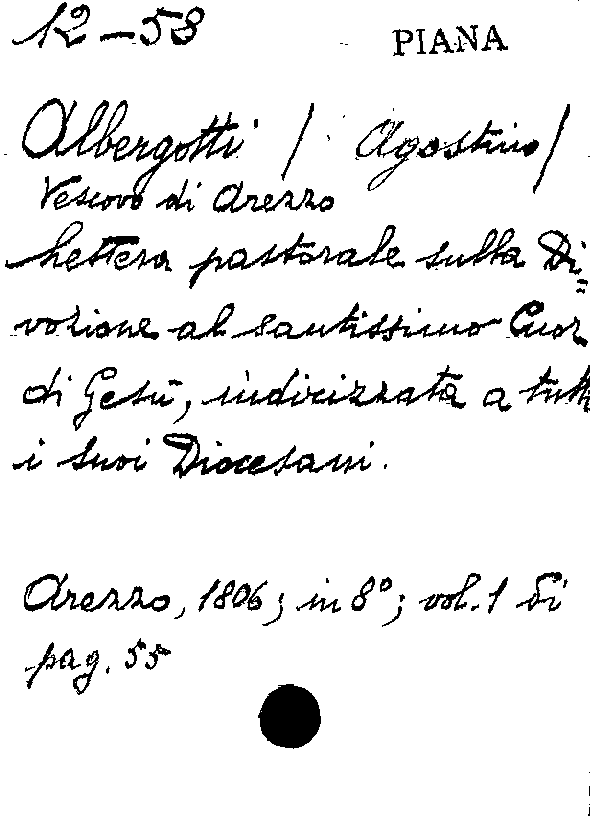 12-58
PIANA
Albergotti / Agostino/
Vescovo di Arezzo
Lettera pastorale sulla Di=
vozione al Santissimo Cuor
di Gesù, indirizzata a tutti
i suoi Diocesani.
Arezzo, 1806; in 8°; vol. 1 di
pag. 55